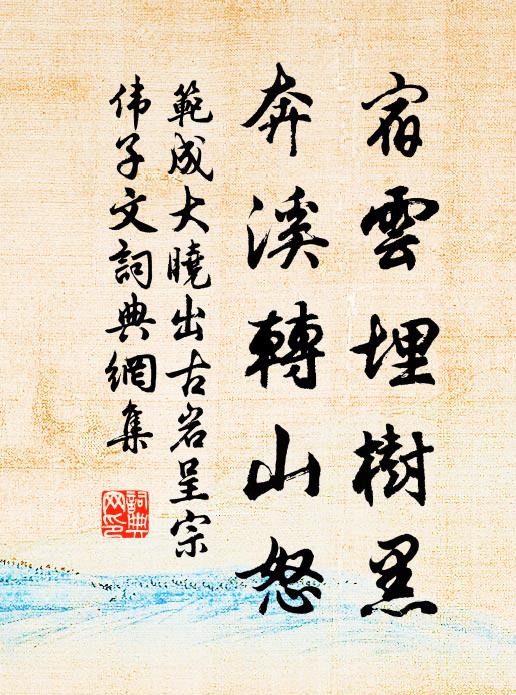 宿雲埋樹黑
奔溪轉山怒
範成大曉出古岩呈宗
伟子文詞典網集
詞典
网印